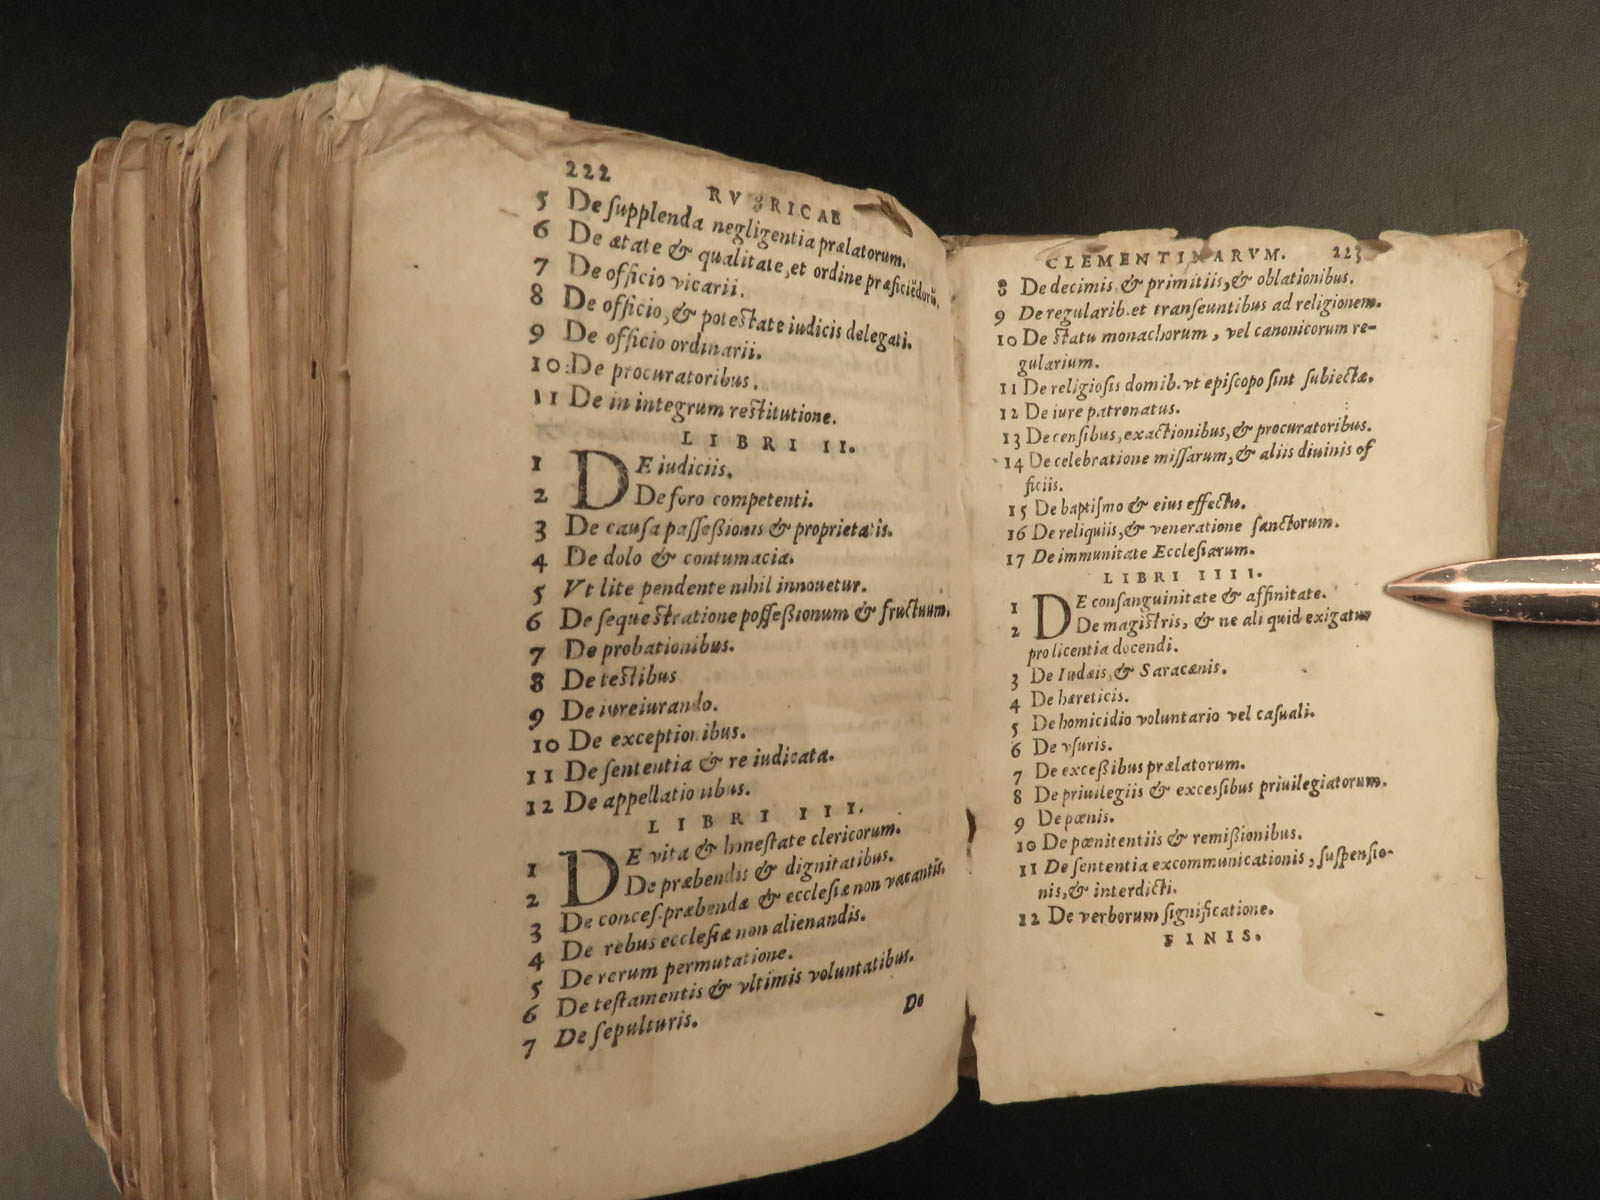 222 RVBRICAE
5 De ſupplenda negligentia prælatorum.
6 De ætate & qualitate, et ordine præficiẽdorũ.
7 De officio vicarii.
8 De officio, & poteſtate iudicis delegati.
9 De officio ordinarii.
10 De procuratoribus.
11 De in integrum reſtitutione.
LIBRI II.
1 DE iudiciis.
2 De foro competenti.
3 De cauſa paſſeßionis & proprietatis.
4 De dolo & contumacia.
5 Vt lite pendente nihil innouetur.
6 De ſequeſtratione poſſeßionum & fructuum.
7 De probationibus.
8 De teſtibus
9 De iureiurando.
10 De exceptionibus.
11 De ſententia & re iudicata.
12 De appellationibus.
LIBRI III.
1 DE vita & honeſtate clericorum.
2 De præbendis & dignitatibus.
3 De conceſ. præbendæ & eccleſiæ non vacantis.
4 De rebus eccleſiæ non alienandis.
5 De rerum permutatione.
6 De teſtamentis & vltimis voluntatibus.
7 De ſepulturis.
De
CLEMENTINARVM. 223
8 De decimis & primitiis, & oblationibus.
9 De regularib. et tranſeuntibus ad religionem.
10 De ſtatu monachorum, vel canonicorum re-
gularium.
11 De religioſis domib. vt epiſcopo ſint ſubiectæ.
12 De iure patronatus.
13 De cenſibus, exactionibus, & procuratoribus.
14 De celebratione miſſarum, & aliis diuinis of
ficiis.
15 De baptiſmo & eius effectu.
16 De reliquiis, & veneratione ſanctorum.
17 De immunitate Eccleſiarum.
LIBRI IIII.
1 DE conſanguinitate & affinitate.
2 De magiſtris, & ne ali quid exigatur
pro licentia docendi.
3 De Iudæis, & Saracænis.
4 De hæreticis.
5 De homicidio voluntario vel caſuali.
6 De vſuris.
7 De exceßibus prælatorum.
8 De priuilegiis & exceſſibus priuilegiatorum.
9 De pœnis.
10 De pœnitentiis & remißionibus.
11 De ſententia excommunicationis, ſuſpenſio-
nis, & interdicti.
12 De verborum ſignificatione.
FINIS.